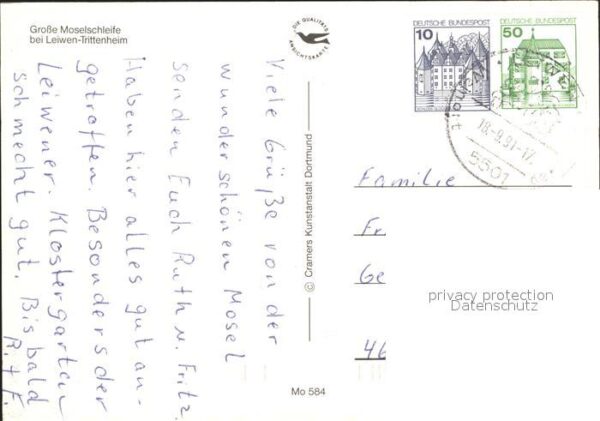 Große Moselschleife
bei Leiwen-Trittenheim
DIE QUALITÄTS
ANSICHTSKARTE
10
DEUTSCHE BUNDESPOST
50
DEUTSCHE BUNDESPOST
18.-9.91-17
5501
Viele Grüße von der
wunderschönen Mosel
senden Euch Ruth u. Fritz.
Haben hier alles gut an-
getroffen. Besonders der
Leiwener Klostergarten
schmeckt gut. Bis bald
R. + F.
© Cramers Kunstanstalt Dortmund
Mo 584
Familie
Fr
Ge
46
privacy protection
Datenschutz